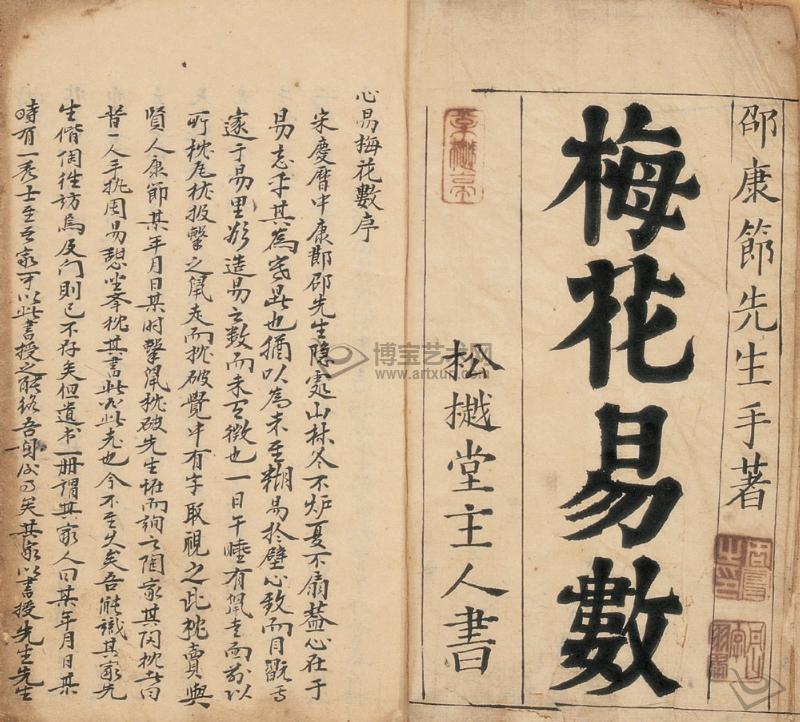 邵康節先生手著
梅花易數
松樾堂主人書
心易梅花數序
宋慶曆中康節邵先生隱處山林冬不炉夏不扇蓋心在于
易忘乎其為寒暑也猶以為未至糊易於壁心致而目翫焉
邃于易里欲造易之数而未有徵也一日午睡有鼠走而前以
所枕瓦枕投擊之鼠走而枕破覺中有字取視之此枕賣與
賢人康節某年月日某时擊鼠枕破先生怪而詢之陶家其陶枕者曰
昔一人手执周易憩坐举枕其書此必此老也今不至久矣吾能識其家先
生偕陶徃訪焉及门則已不存矣但遺书一册謂其家人曰某年月日某
時有一秀士至吾家可以此書授之能終吾身後事矣其家以書授先生先生
博宝艺术网
www.artxun.com